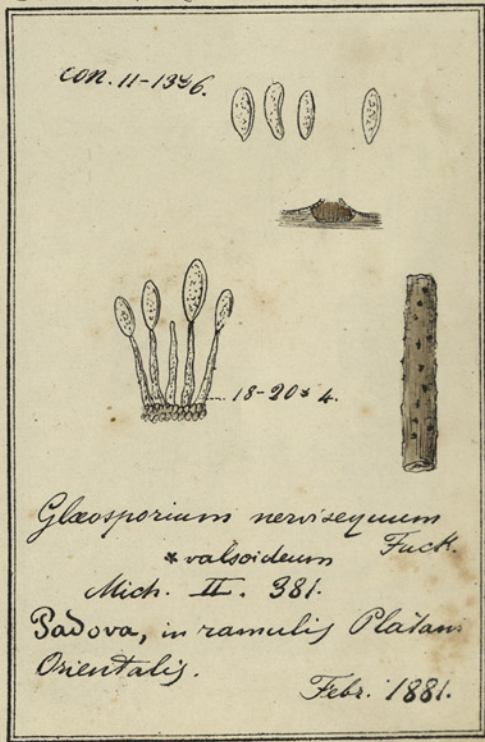 con. 11-13*6.
18-20* 4.
Glœosporium nervisequum
Fuck.
* valsoideum
Mich. II. 381.
Padova, in ramulis Platani
Orientalis.
Febr. 1881.